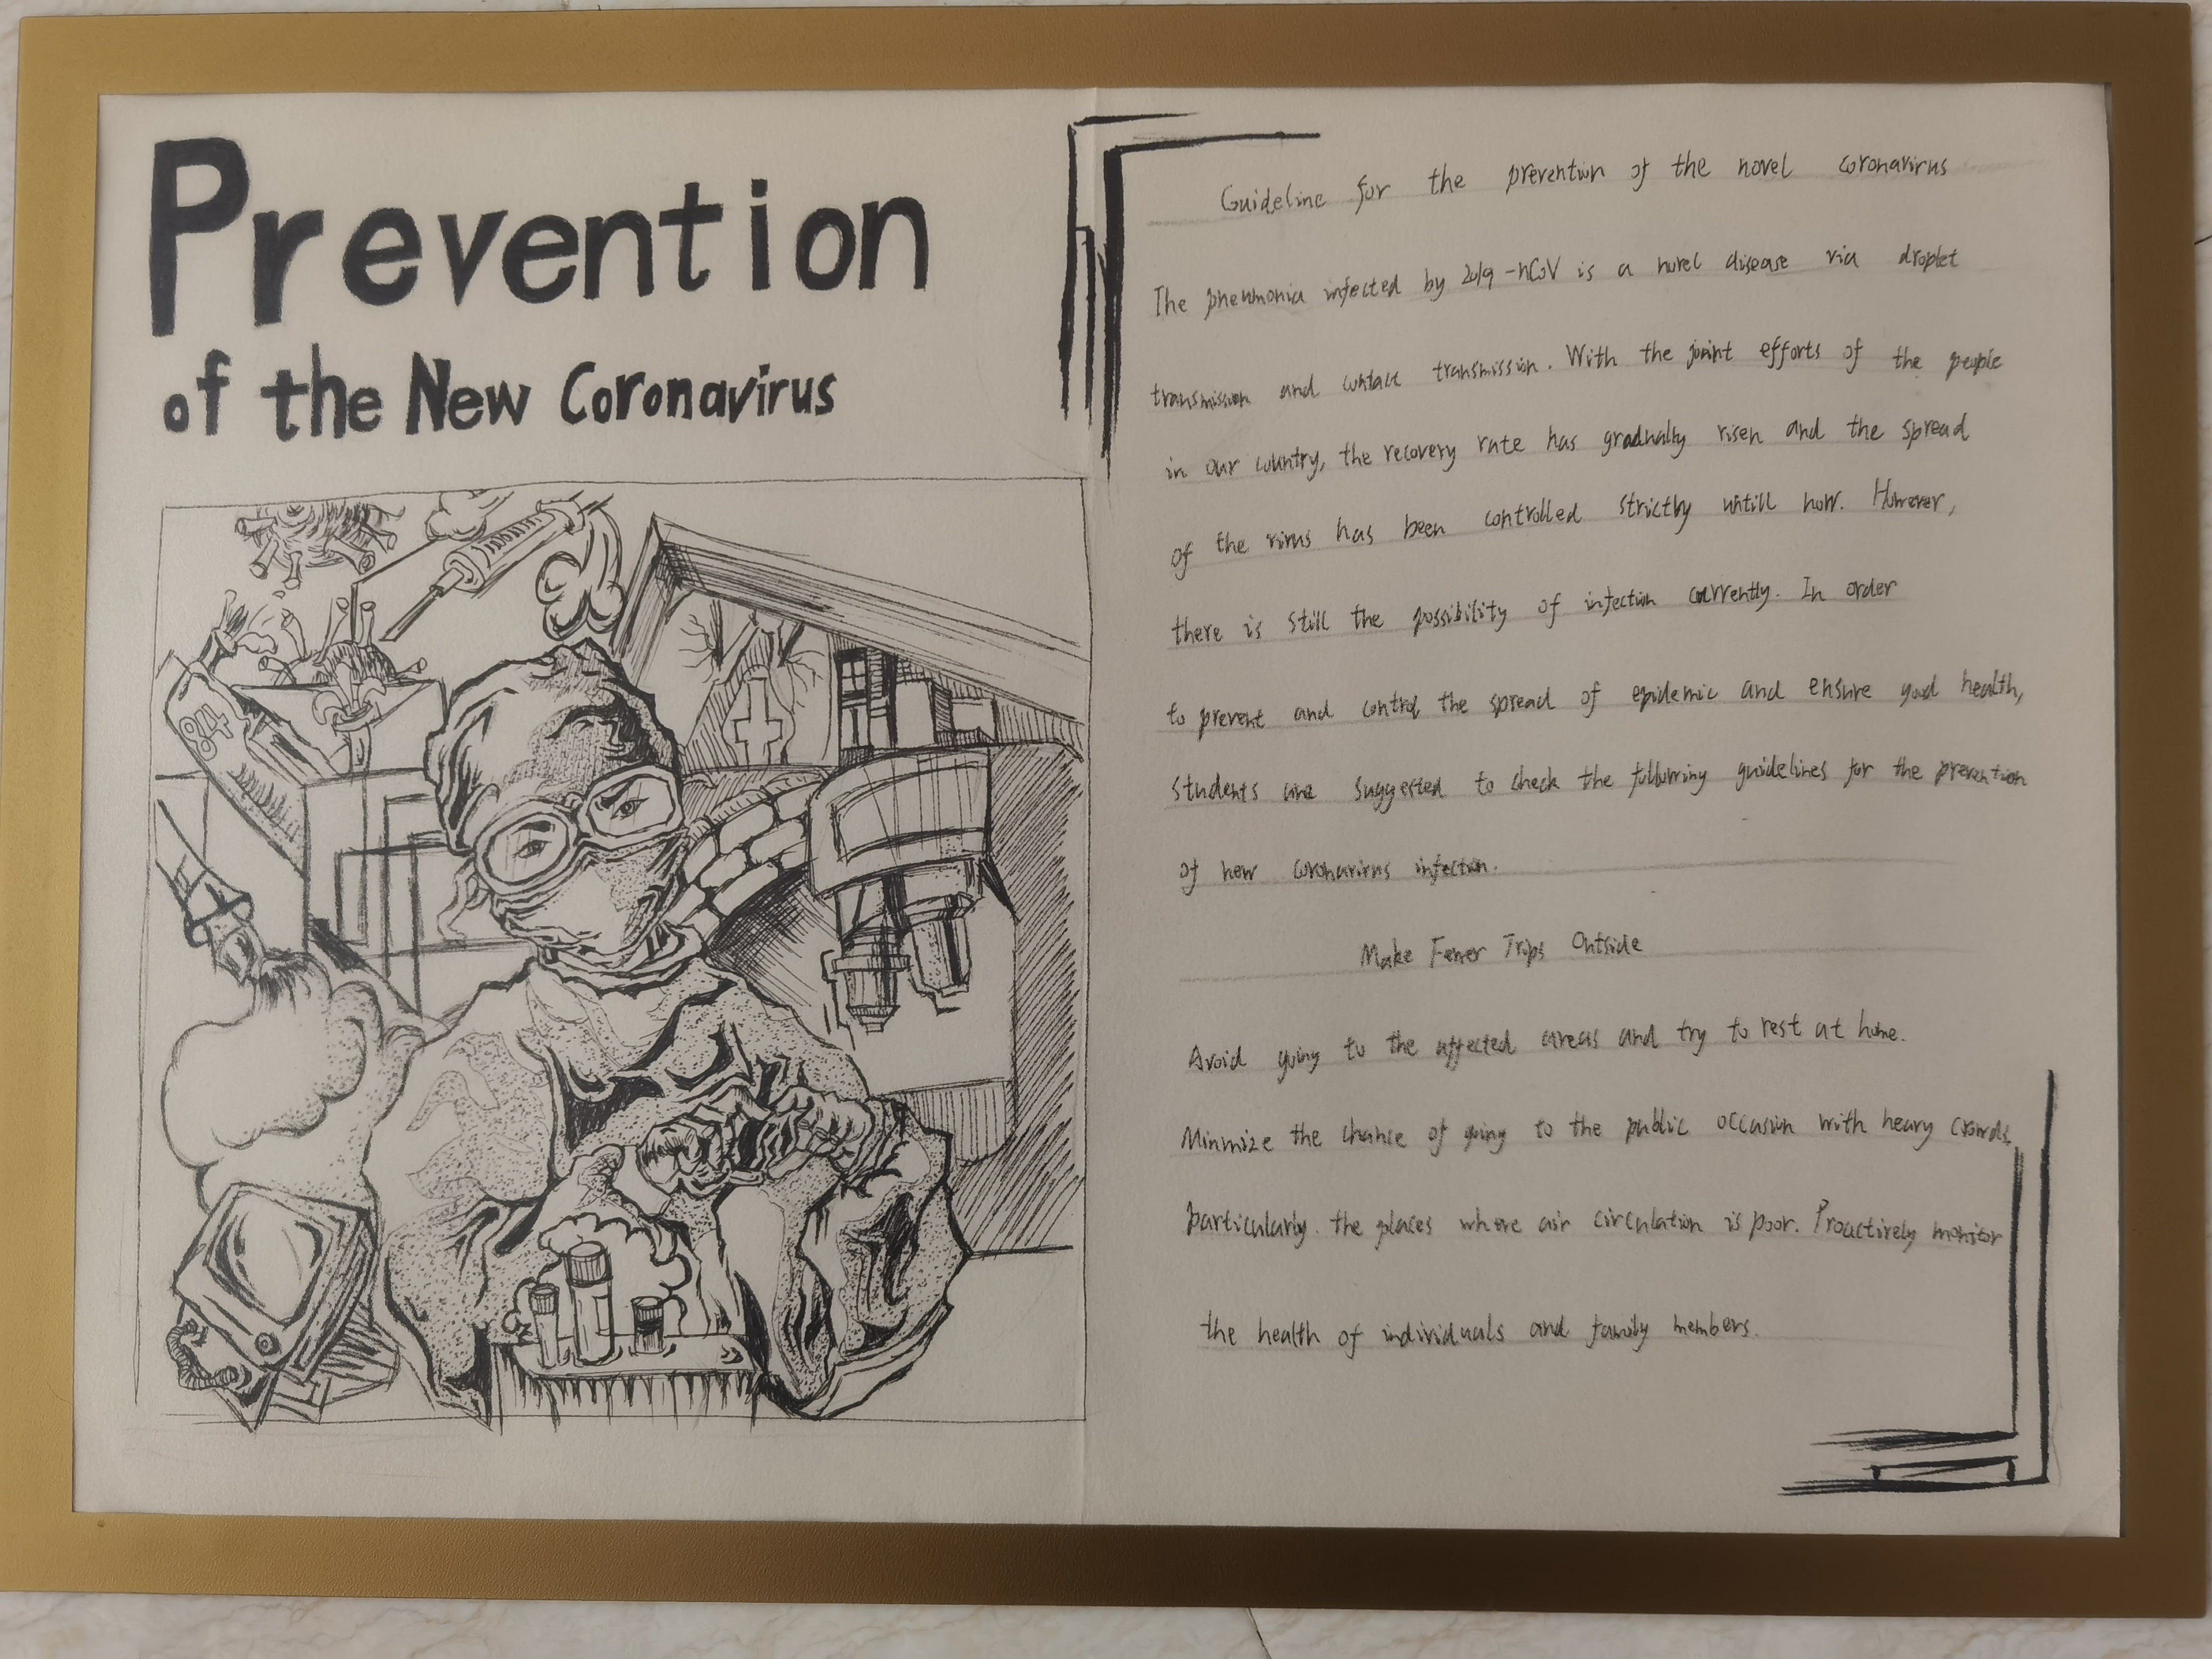 Prevention
of the New Coronavirus
84
Guideline for the prevention of the novel coronavirus
The pneumonia infected by 2019-nCoV is a novel disease via droplet
transmission and contact transmission. With the joint efforts of the people
in our country, the recovery rate has gradually risen and the spread
of the virus has been controlled strictly untill now. However,
there is still the possibility of infection currently. In order
to prevent and control the spread of epidemic and ensure good health,
students are suggested to check the following guidelines for the prevention
of new coronavirus infection.
Make Fewer Trips Outside
Avoid going to the affected areas and try to rest at home.
Minmize the chance of going to the public occasion with heavy crowds,
particularly. the places where air circulation is poor. Proactively monitor
the health of individuals and family members.